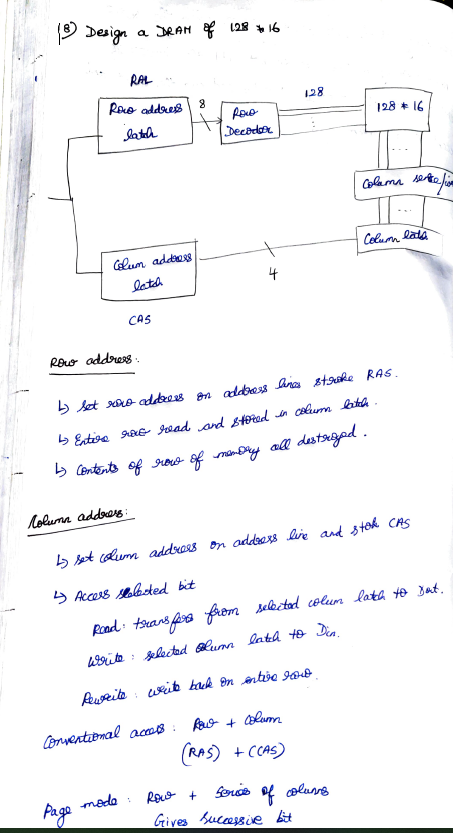 18) Design a DRAM of 128 * 16
RAL
Row address
latch
8
Row
Decoder
128
128 * 16
...
Column sense/io
...
Column latch
4
Colum address
latch
CAS
Row address:
↳ Set row address on address lines stroke RAS.
↳ Entire row read and stored in column latch.
↳ Contents of row of memory cell destroyed.
Column address:
↳ Set column address on address live and stok CAS
↳ Access selected bit
Read: transfers from selected colum latch to Dout.
Write: selected column latch to Din.
Rewrite: write back on entire row.
Conventional access: Row + Column
(RAS) + (CAS)
Page mode: Row + Series of columns
Gives successive bit